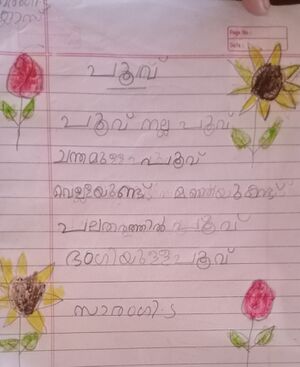 Page No.:
Date:
പൂവ്
പൂവ് നല്ല പൂവ്
ചന്തമുള്ള പൂവ്
വെള്ളയുണ്ട് മഞ്ഞയുണ്ട്
പലതരത്തിൽ പൂവ്
ഭംഗിയുള്ള പൂവ്
സാരംഗി. s